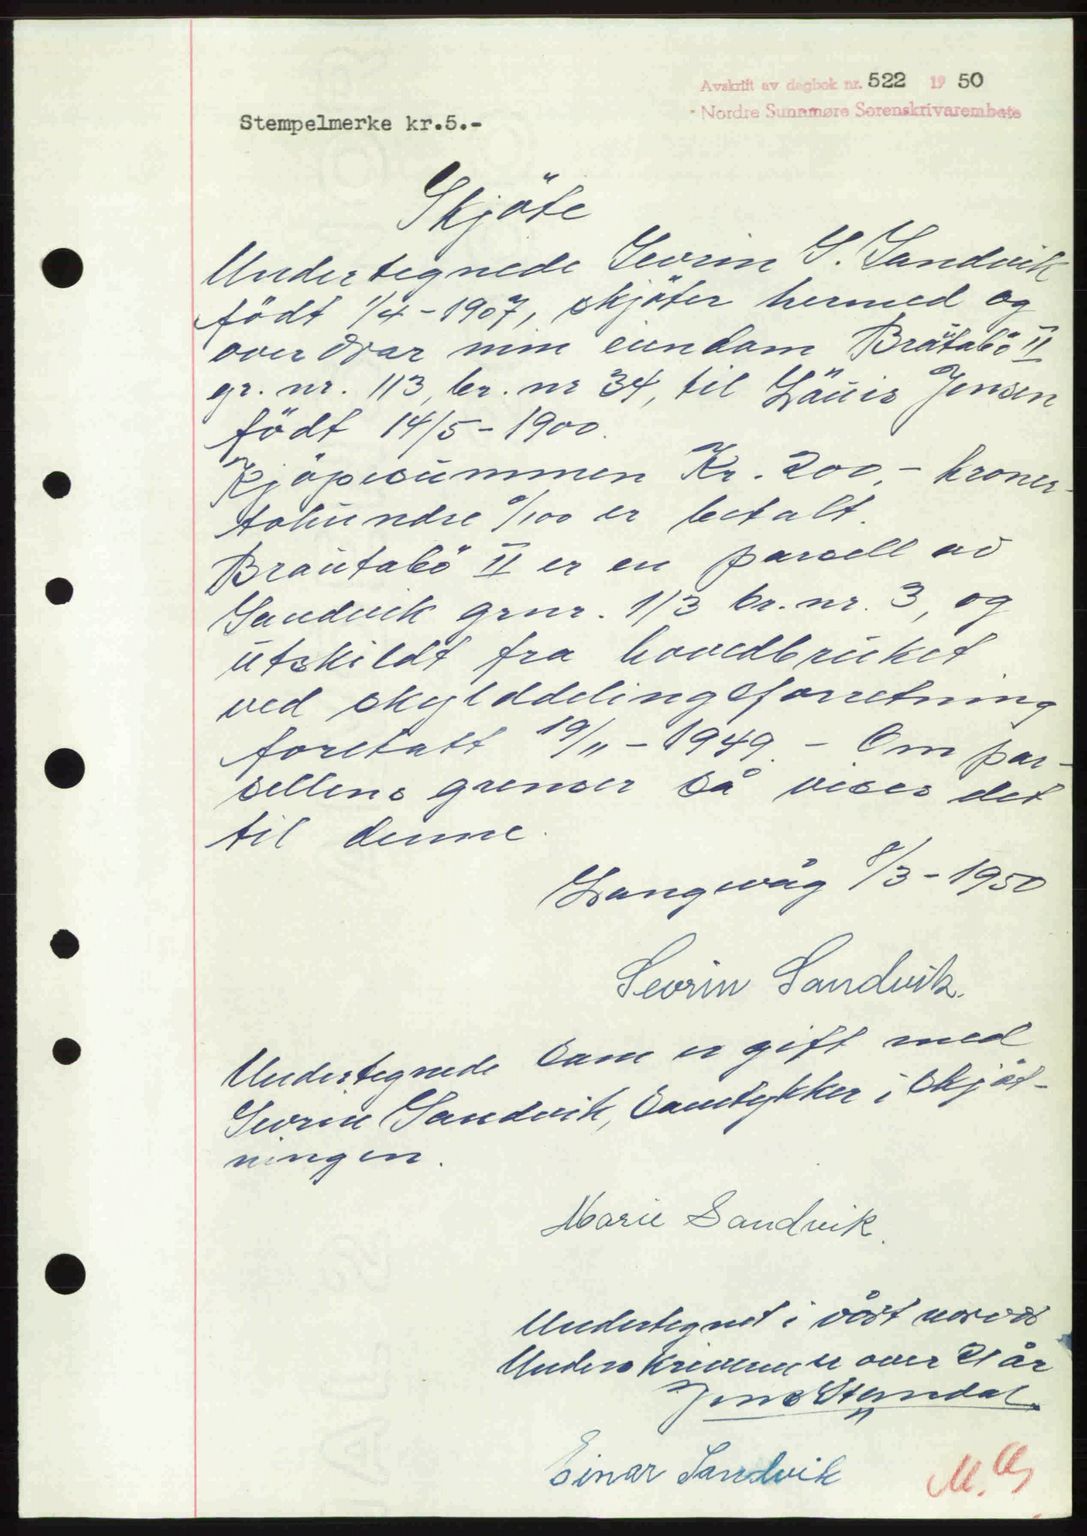 Avskrift av dagbok nr. 522 1950
Nordre Sunnmøre Sorenskrivarembete
Stempelmerke kr.5.-
Skjöte
Undertegnede Sevrin S. Sandvik
födt 1/4-1907, skjöter hermed og
over drar min eiendom Brautabö II
gr. nr. 113, br. nr 34, til Läuis Jensen
födt 14/5-1900.
Kjöpesummen Kr. 200,- kroner-
tohundre 0/100 er betalt.
Brautabö II er en parsell av
Sandvik grnr. 113 br. nr. 3, og
utskildt fra hovedbruket
ved skylddelingsforretning
foretatt 19/11-1949. - Om par-
sellens grenser så vises det
til denne.
Langevåg 8/3-1950
Sevrin Sandvik.
Undertegnede som er gift med
Sevrin Sandvik, samtykker i skjöt-
ningen.
Marie Sandvik.
Undertegnet i vårt nærvær
Underskriverne er over 21 år
Jens
Einar Sandvik